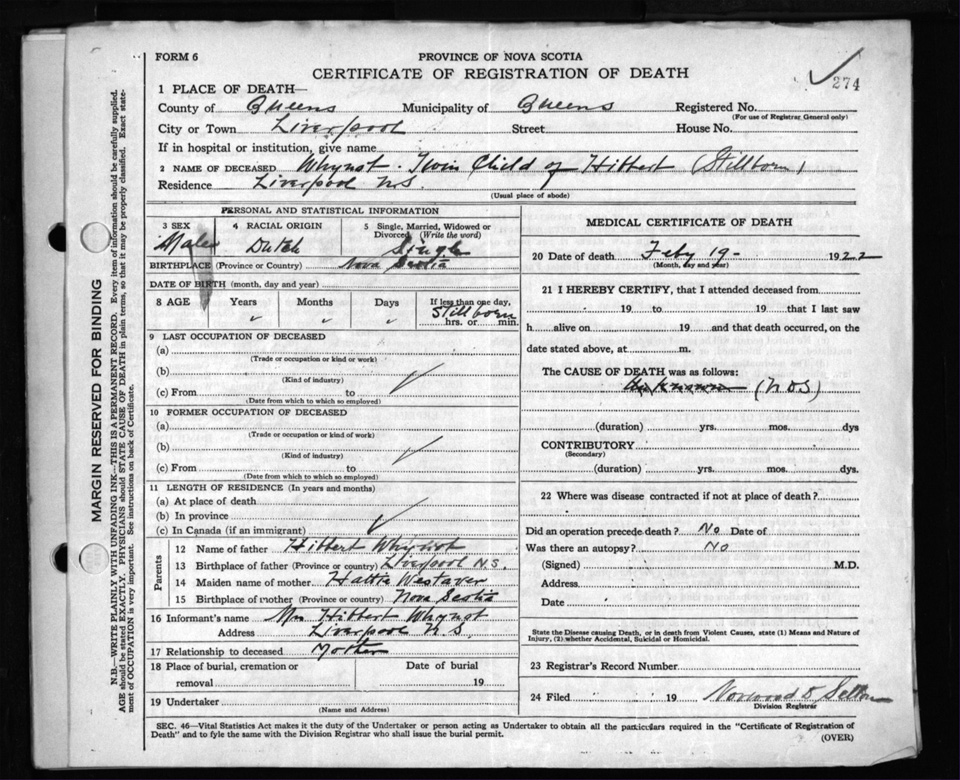 FORM 6
PROVINCE OF NOVA SCOTIA
CERTIFICATE OF REGISTRATION OF DEATH
274
1 PLACE OF DEATH—
County of Queens Municipality of Queens Registered No.
(For use of Registrar General only)
City or Town Liverpool Street House No.
If in hospital or institution, give name
2 NAME OF DECEASED Whynot - Twin Child of Hibbert (Stillborn)
Residence Liverpool N.S.
(Usual place of abode)
PERSONAL AND STATISTICAL INFORMATION
3 SEX 4 RACIAL ORIGIN 5 Single, Married, Widowed or Divorced (Write the word)
Male Dutch Single
BIRTHPLACE (Province or Country) Nova Scotia
DATE OF BIRTH (month, day and year)
8 AGE Years Months Days If less than one day,
Stillborn
hrs. or min.
9 LAST OCCUPATION OF DECEASED
(a)
(Trade or occupation or kind or work)
(b)
(Kind of industry)
(c) From to
(Date from which to which so employed)
10 FORMER OCCUPATION OF DECEASED
(a)
(Trade or occupation or kind or work)
(b)
(Kind of industry)
(c) From to
(Date from which to which so employed)
11 LENGTH OF RESIDENCE (In years and months)
(a) At place of death
(b) In province
(c) In Canada (if an immigrant)
Parents
12 Name of father Hibbert Whynot
13 Birthplace of father (Province or country) Liverpool N.S.
14 Maiden name of mother Hattie Westaver
15 Birthplace of mother (Province or country) Nova Scotia
16 Informant's name Mrs Hibbert Whynot
Address Liverpool N.S.
17 Relationship to deceased Mother
18 Place of burial, cremation or removal Date of burial 19
19 Undertaker
(Name and Address)
MEDICAL CERTIFICATE OF DEATH
20 Date of death Feby 19 - 1922
(Month, day and year)
21 I HEREBY CERTIFY, that I attended deceased from
19 to 19 that I last saw
h alive on 19 and that death occurred, on the
date stated above, at m.
The CAUSE OF DEATH was as follows:
Unknown (NDS)
(duration) yrs. mos. dys
CONTRIBUTORY
(Secondary)
(duration) yrs. mos. dys.
22 Where was disease contracted if not at place of death?
Did an operation precede death? No Date of
Was there an autopsy? No
(Signed) M.D.
Address
Date
State the Disease causing Death, or in death from Violent Causes, state (1) Means and Nature of
Injury, (2) whether Accidental, Suicidal or Homicidal.
23 Registrar's Record Number
24 Filed 19 Norwood D.
Division Registrar
SEC. 46—Vital Statistics Act makes it the duty of the Undertaker or person acting as Undertaker to obtain all the particulars required in the "Certificate of Registration of
Death" and to fyle the same with the Division Registrar who shall issue the burial permit.
(OVER)
MARGIN RESERVED FOR BINDING
N.B.—WRITE PLAINLY WITH UNFADING INK—THIS IS A PERMANENT RECORD. Every item of information should be carefully supplied.
AGE should be stated EXACTLY. PHYSICIANS should STATE CAUSE OF DEATH in plain terms, so that it may be properly classified. Exact state-
ment of OCCUPATION is very important. See instructions on back of Certificate.